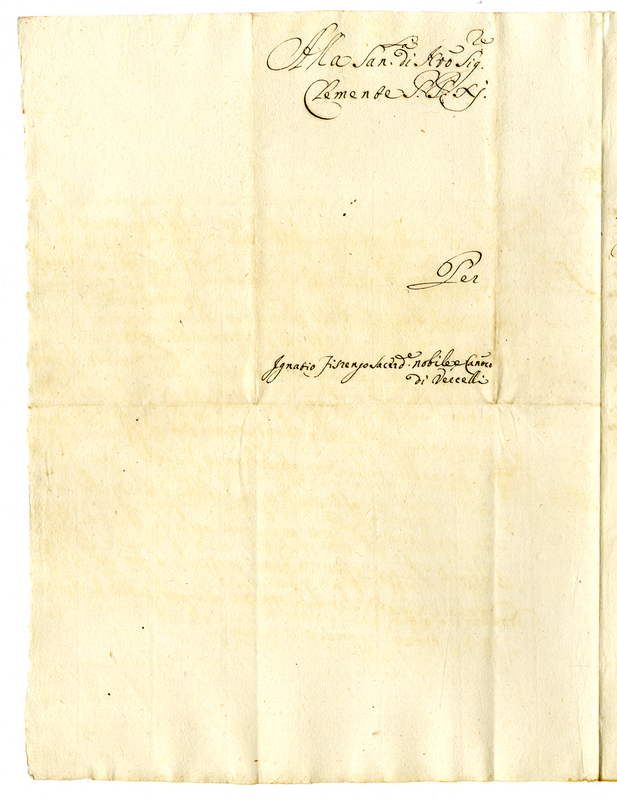 Alla San.tà di Nro Sig.re
Clemente P.P. XI.
Per
Ignatio Fisrenjo Sacerd.e nobile, e Can.co
di Vercelli